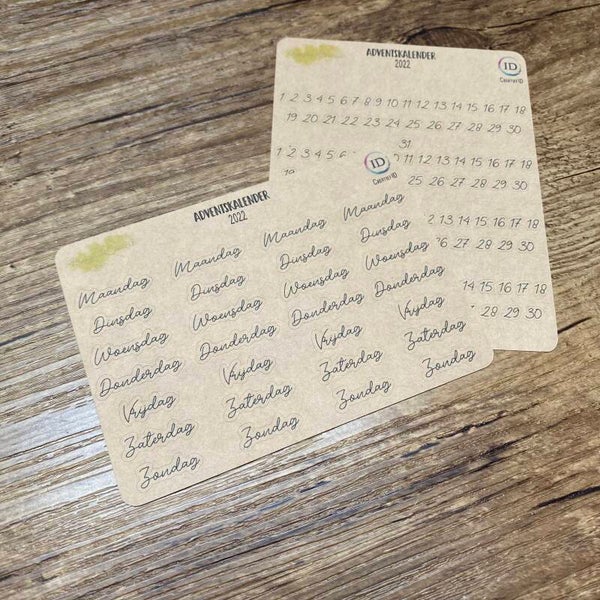 ADVENTSKALENDER
2022
ID
1 2 3 4 5 6 7 8 9 10 11 12 13 14 15 16 17 18
19 20 21 22 23 24 25 26 27 28 29 30
31
1 2 3 4 5 11 12 13 14 15 16 17 18
25 26 27 28 29 30
13 14 15 16 17 18
27 28 29 30
14 15 16 17 18
28 29 30
ADVENTSKALENDER
2022
ID
Maandag Maandag Maandag Maandag
Dinsdag Dinsdag Dinsdag Dinsdag
Woensdag Woensdag Woensdag Woensdag
Donderdag Donderdag Donderdag Donderdag
Vrijdag Vrijdag Vrijdag Vrijdag
Zaterdag Zaterdag Zaterdag Zaterdag
Zondag Zondag Zondag Zondag